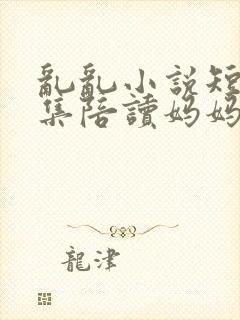 亂亂小說短
集陪讀媽媽
龍津